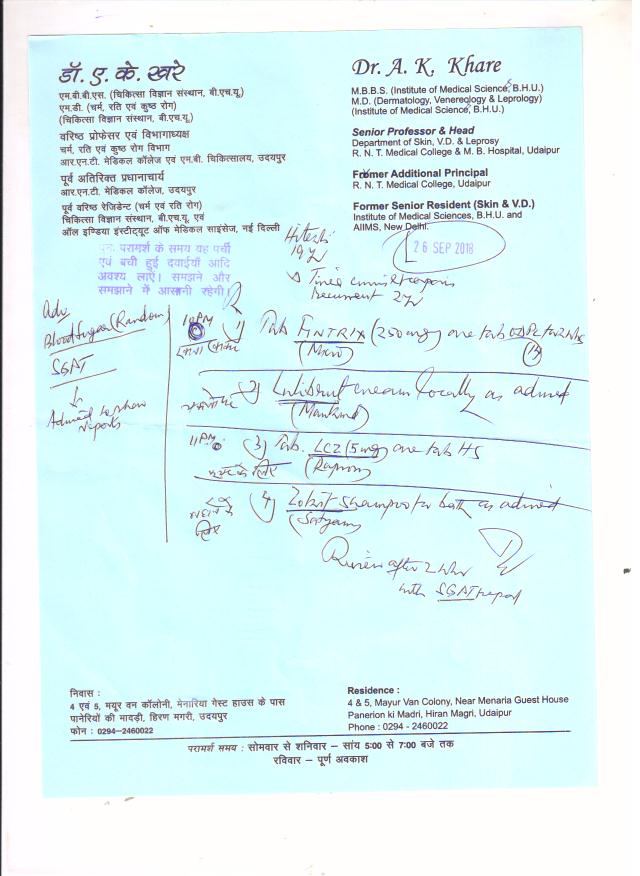 डॉ. ए. के. खरे
एम.बी.बी.एस. (चिकित्सा विज्ञान संस्थान, बी.एच.यू.)
एम.डी. (चर्म, रति एवं कुष्ठ रोग)
(चिकित्सा विज्ञान संस्थान, बी.एच.यू.)
वरिष्ठ प्रोफेसर एवं विभागाध्यक्ष
चर्म, रति एवं कुष्ठ रोग विभाग
आर.एन.टी. मेडिकल कॉलेज एवं एम.बी. चिकित्सालय, उदयपुर
पूर्व अतिरिक्त प्रधानाचार्य
आर.एन.टी. मेडिकल कॉलेज, उदयपुर
पूर्व वरिष्ठ रेजिडेन्ट (चर्म एवं रति रोग)
चिकित्सा विज्ञान संस्थान, बी.एच.यू. एवं
ऑल इण्डिया इंस्टीट्यूट ऑफ मेडिकल साइंसेज, नई दिल्ली
Dr. A. K. Khare
M.B.B.S. (Institute of Medical Science, B.H.U.)
M.D. (Dermatology, Venereology & Leprology)
(Institute of Medical Science, B.H.U.)
Senior Professor & Head
Department of Skin, V.D. & Leprosy
R. N. T. Medical College & M. B. Hospital, Udaipur
Former Additional Principal
R. N. T. Medical College, Udaipur
Former Senior Resident (Skin & V.D.)
Institute of Medical Sciences, B.H.U. and
AIIMS, New Delhi.
पुनः परामर्श के समय यह पर्ची
एवं बची हुई दवाईयाँ आदि
अवश्य लाएं। समझने और
समझाने में आसानी रहेगी।
Hitesh
19y
26 SEP 2018
Tinea
Recurrent 2y
Adv
Blood Sugar (Random)
SGAT
Advised to show
reports
10PM
1) Tab FINTRIX (250mg) one tab for 2 wks
(Micro) 14
2) cream locally as advised
(Mankind)
11PM 3) Tab. LCZ (5mg) one tab HS
4) shampoo for bath as advised
Review after 2 wks
with SGAT report
निवास :
4 एवं 5, मयूर वन कॉलोनी, मेनारिया गेस्ट हाउस के पास
पानेरियों की मादड़ी, हिरण मगरी, उदयपुर
फोन : 0294-2460022
Residence :
4 & 5, Mayur Van Colony, Near Menaria Guest House
Panerion ki Madri, Hiran Magri, Udaipur
Phone : 0294 - 2460022
परामर्श समय : सोमवार से शनिवार – सांय 5:00 से 7:00 बजे तक
रविवार – पूर्ण अवकाश